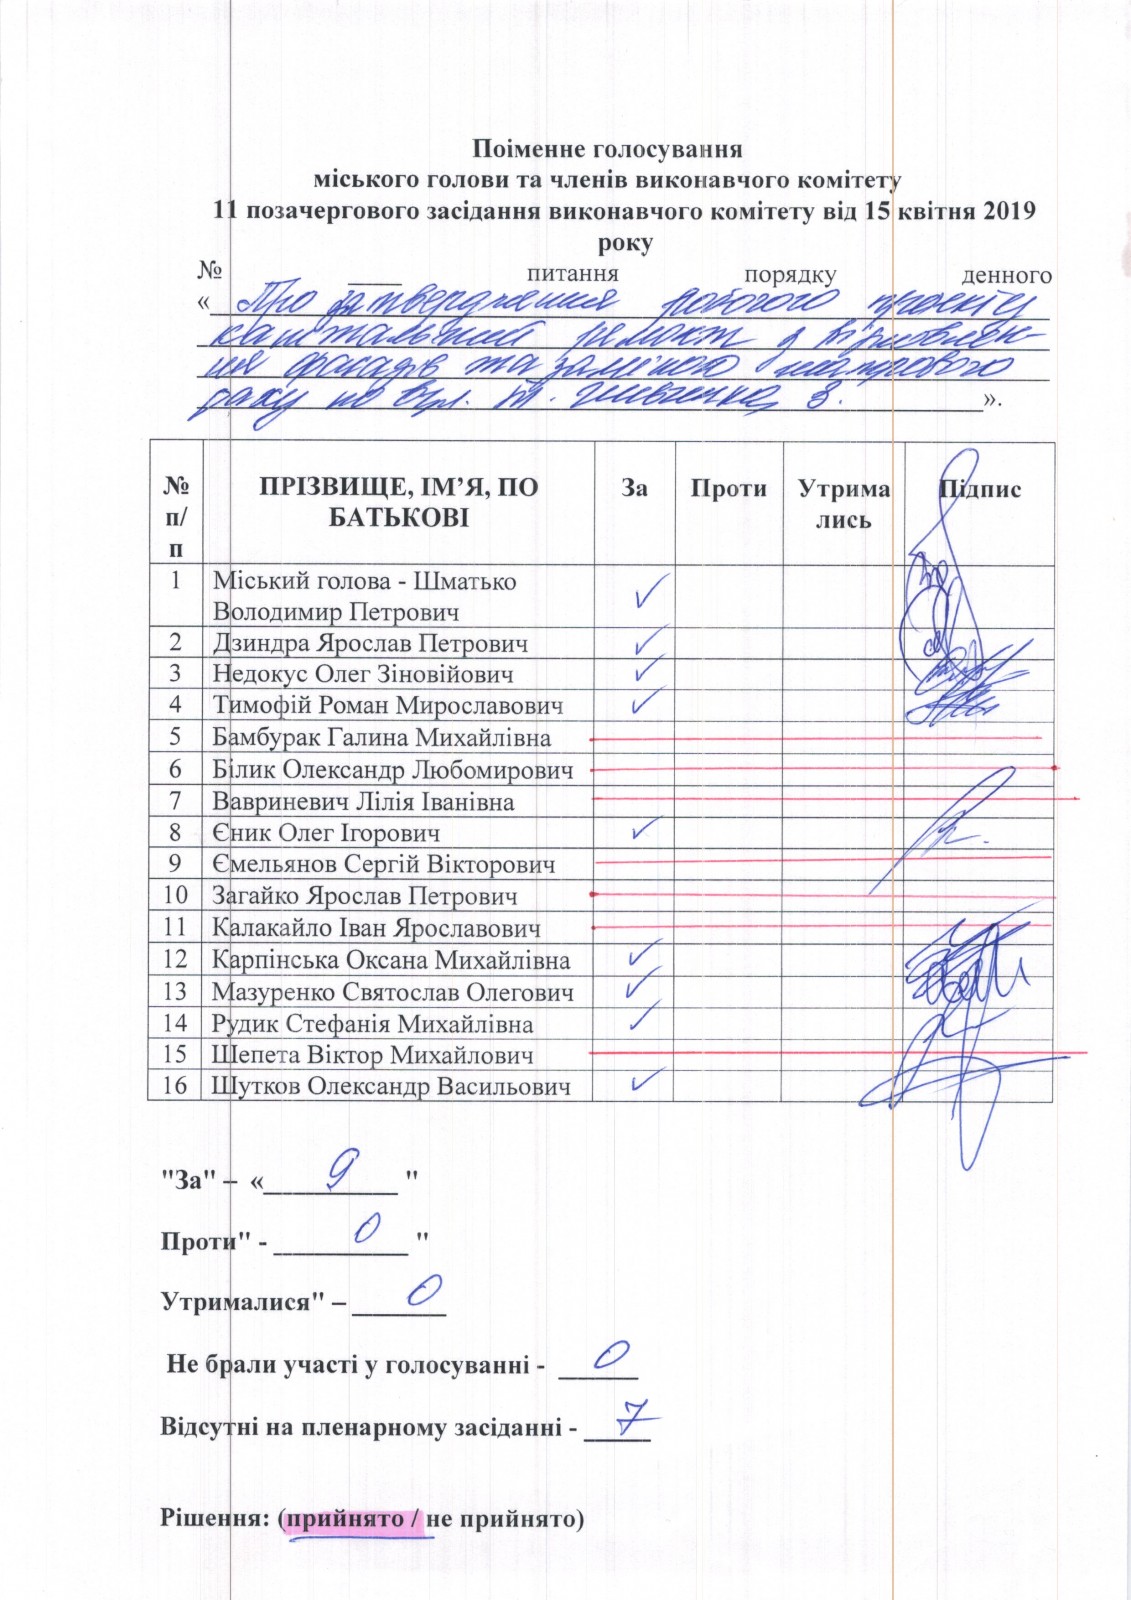 Поіменне голосування
міського голови та членів виконавчого комітету
11 позачергового засідання виконавчого комітету від 15 квітня 2019
року
№ ____ питання порядку денного
« Про затвердження робочого проекту
капітальний ремонт з відновлен-
ня фасадів та заміною шатрового
даху по вул. Т. Шевченка, 3. ».
№ п/п ПРІЗВИЩЕ, ІМ’Я, ПО БАТЬКОВІ За Проти Утрима лись Підпис
1 Міський голова - Шматько
Володимир Петрович ✓
2 Дзиндра Ярослав Петрович ✓
3 Недокус Олег Зіновійович ✓
4 Тимофій Роман Мирославович ✓
5 Бамбурак Галина Михайлівна
6 Білик Олександр Любомирович
7 Вавриневич Лілія Іванівна
8 Єник Олег Ігорович ✓
9 Ємельянов Сергій Вікторович
10 Загайко Ярослав Петрович
11 Калакайло Іван Ярославович
12 Карпінська Оксана Михайлівна ✓
13 Мазуренко Святослав Олегович ✓
14 Рудик Стефанія Михайлівна ✓
15 Шепета Віктор Михайлович
16 Шутков Олександр Васильович ✓
"За" – « 9 "
Проти" - 0 "
Утрималися" – 0
Не брали участі у голосуванні - 0
Відсутні на пленарному засіданні - 7
Рішення: (прийнято / не прийнято)